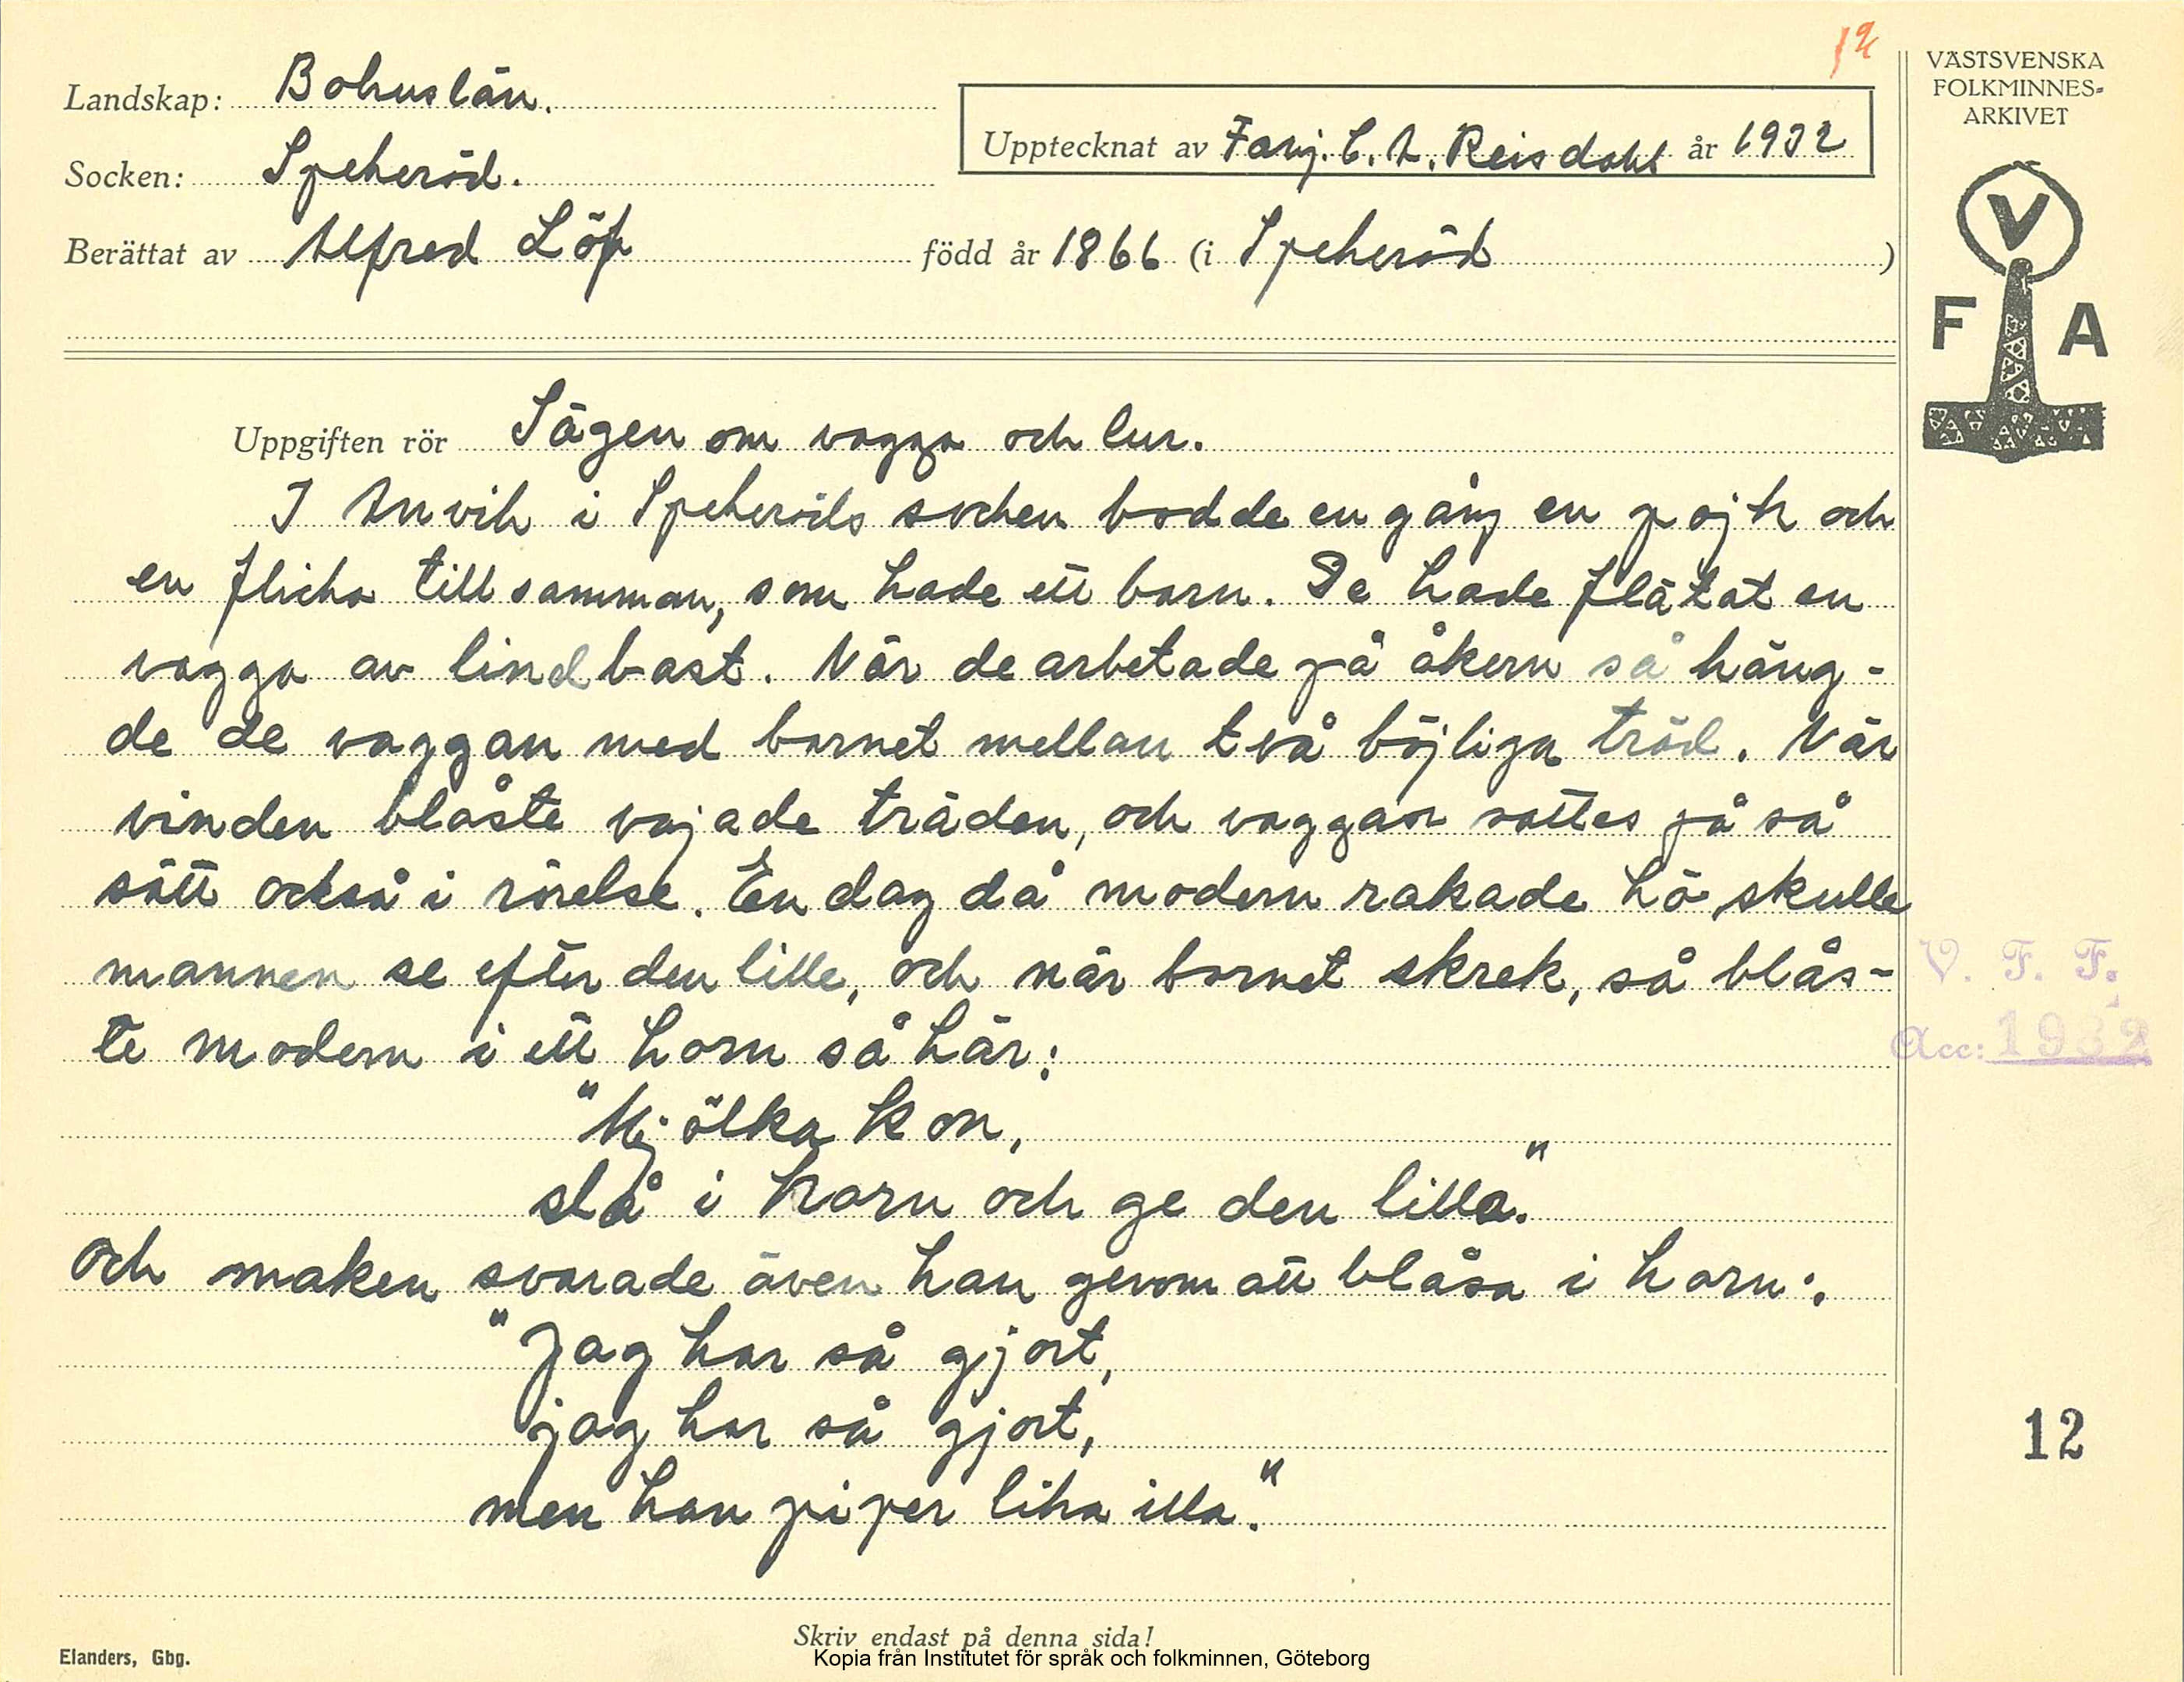 12
Landskap: Bohuslän.
Socken: Spekeröd.
Upptecknat av Fanj. C. A. Reisdahl år 1932
Berättat av Alfred Löf född år 1866 (i Spekeröd)
VÄSTSVENSKA
FOLKMINNES-
ARKIVET
V
F A
Uppgiften rör Sägen om vagga och lur.
I Anvik i Spekeröds socken bodde en gång en pojk och
en flicka tillsamman, som hade ett barn. De hade flätat en
vagga av lindbast. När de arbetade på åkern så häng-
de de vaggan med barnet mellan två böjliga träd. När
vinden blåste vajade träden, och vaggan sattes på så
sätt också i rörelse. En dag då modern rakade hö skulle
mannen se efter den lille, och när barnet skrek, så blås-
te modern i ett horn så här:
"Mjölka kon,
slå i horn och ge den lilla."
Och maken svarade även han genom att blåsa i horn:
"Jag har så gjort,
jag har så gjort,
men han piper lika illa."
V. F. F.
Acc: 1932
12
Skriv endast på denna sida!
Elanders, Gbg.
Kopia från Institutet för språk och folkminnen, Göteborg